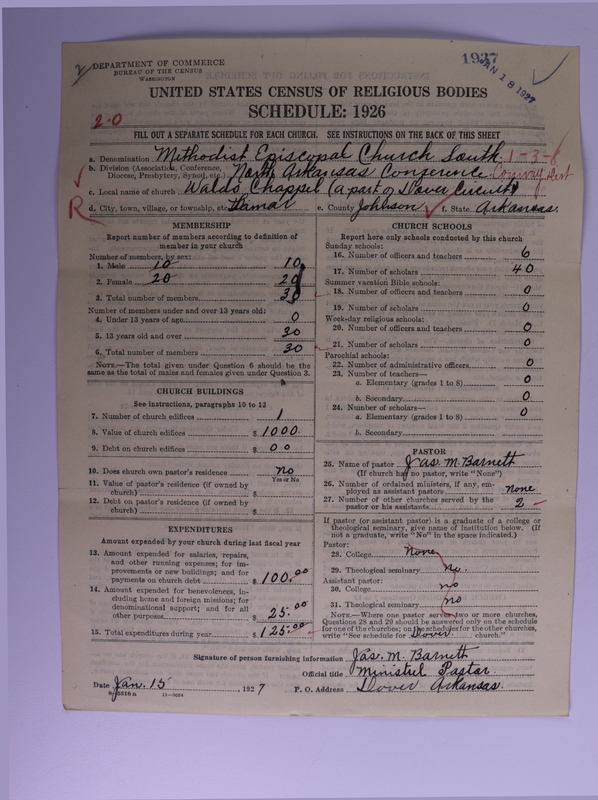 DEPARTMENT OF COMMERCE
BUREAU OF THE CENSUS
WASHINGTON
1927
JAN 18 1927
UNITED STATES CENSUS OF RELIGIOUS BODIES
SCHEDULE: 1926
2-0
FILL OUT A SEPARATE SCHEDULE FOR EACH CHURCH. SEE INSTRUCTIONS ON THE BACK OF THIS SHEET
a. Denomination Methodist Episcopal Church South 1-3-6
b. Division (Association, Conference, Diocese, Presbytery, Synod, etc.) North Arkansas Conference. Conway Dist
c. Local name of church Walds Chappel (a part of Dover Circuit)
R
d. City, town, village, or township, etc. Lamar e. County Johnson f. State Arkansas.
MEMBERSHIP
Report number of members according to definition of
member in your church
Number of members, by sex:
1. Male 10 10
2. Female 20 20
3. Total number of members 30
Number of members under and over 13 years old:
4. Under 13 years of age 0
5. 13 years old and over 30
6. Total number of members 30
NOTE.—The total given under Question 6 should be the
same as the total of males and females given under Question 3.
CHURCH BUILDINGS
See instructions, paragraphs 10 to 12
7. Number of church edifices 1
8. Value of church edifices $ 1000
9. Debt on church edifices $ 00
10. Does church own pastor's residence No
Yes or No
11. Value of pastor's residence (if owned by
church) $
12. Debt on pastor's residence (if owned by
church) $
EXPENDITURES
Amount expended by your church during last fiscal year
13. Amount expended for salaries, repairs,
and other running expenses; for im-
provements or new buildings; and for
payments on church debt $ 100.00
14. Amount expended for benevolences, in-
cluding home and foreign missions; for
denominational support; and for all
other purposes $ 25.00
15. Total expenditures during year $ 125.00
CHURCH SCHOOLS
Report here only schools conducted by this church
Sunday schools:
16. Number of officers and teachers 6
17. Number of scholars 40
Summer vacation Bible schools:
18. Number of officers and teachers 0
19. Number of scholars 0
Week-day religious schools:
20. Number of officers and teachers 0
21. Number of scholars 0
Parochial schools:
22. Number of administrative officers 0
23. Number of teachers—
a. Elementary (grades 1 to 8) 0
b. Secondary 0
24. Number of scholars—
a. Elementary (grades 1 to 8) 0
b. Secondary
PASTOR
25. Name of pastor Jas. M. Barnett
(If church has no pastor, write "None")
26. Number of ordained ministers, if any, em-
ployed as assistant pastors none
27. Number of other churches served by the
pastor or his assistants 2
If pastor (or assistant pastor) is a graduate of a college or
theological seminary, give name of institution below. (If
not a graduate, write "No" in the space indicated.)
Pastor:
28. College None
29. Theological seminary No.
Assistant pastor:
30. College no
31. Theological seminary no
NOTE.—Where one pastor serves two or more churches,
Questions 28 and 29 should be answered only on the schedule
for one of the churches; on the schedules for the other churches,
write "See schedule for Dover church."
Signature of person furnishing information Jas. M. Barnett
Official title Ministrel Pastor
Date Jan. 15, 1927 P. O. Address Dover Arkansas.
11-9034